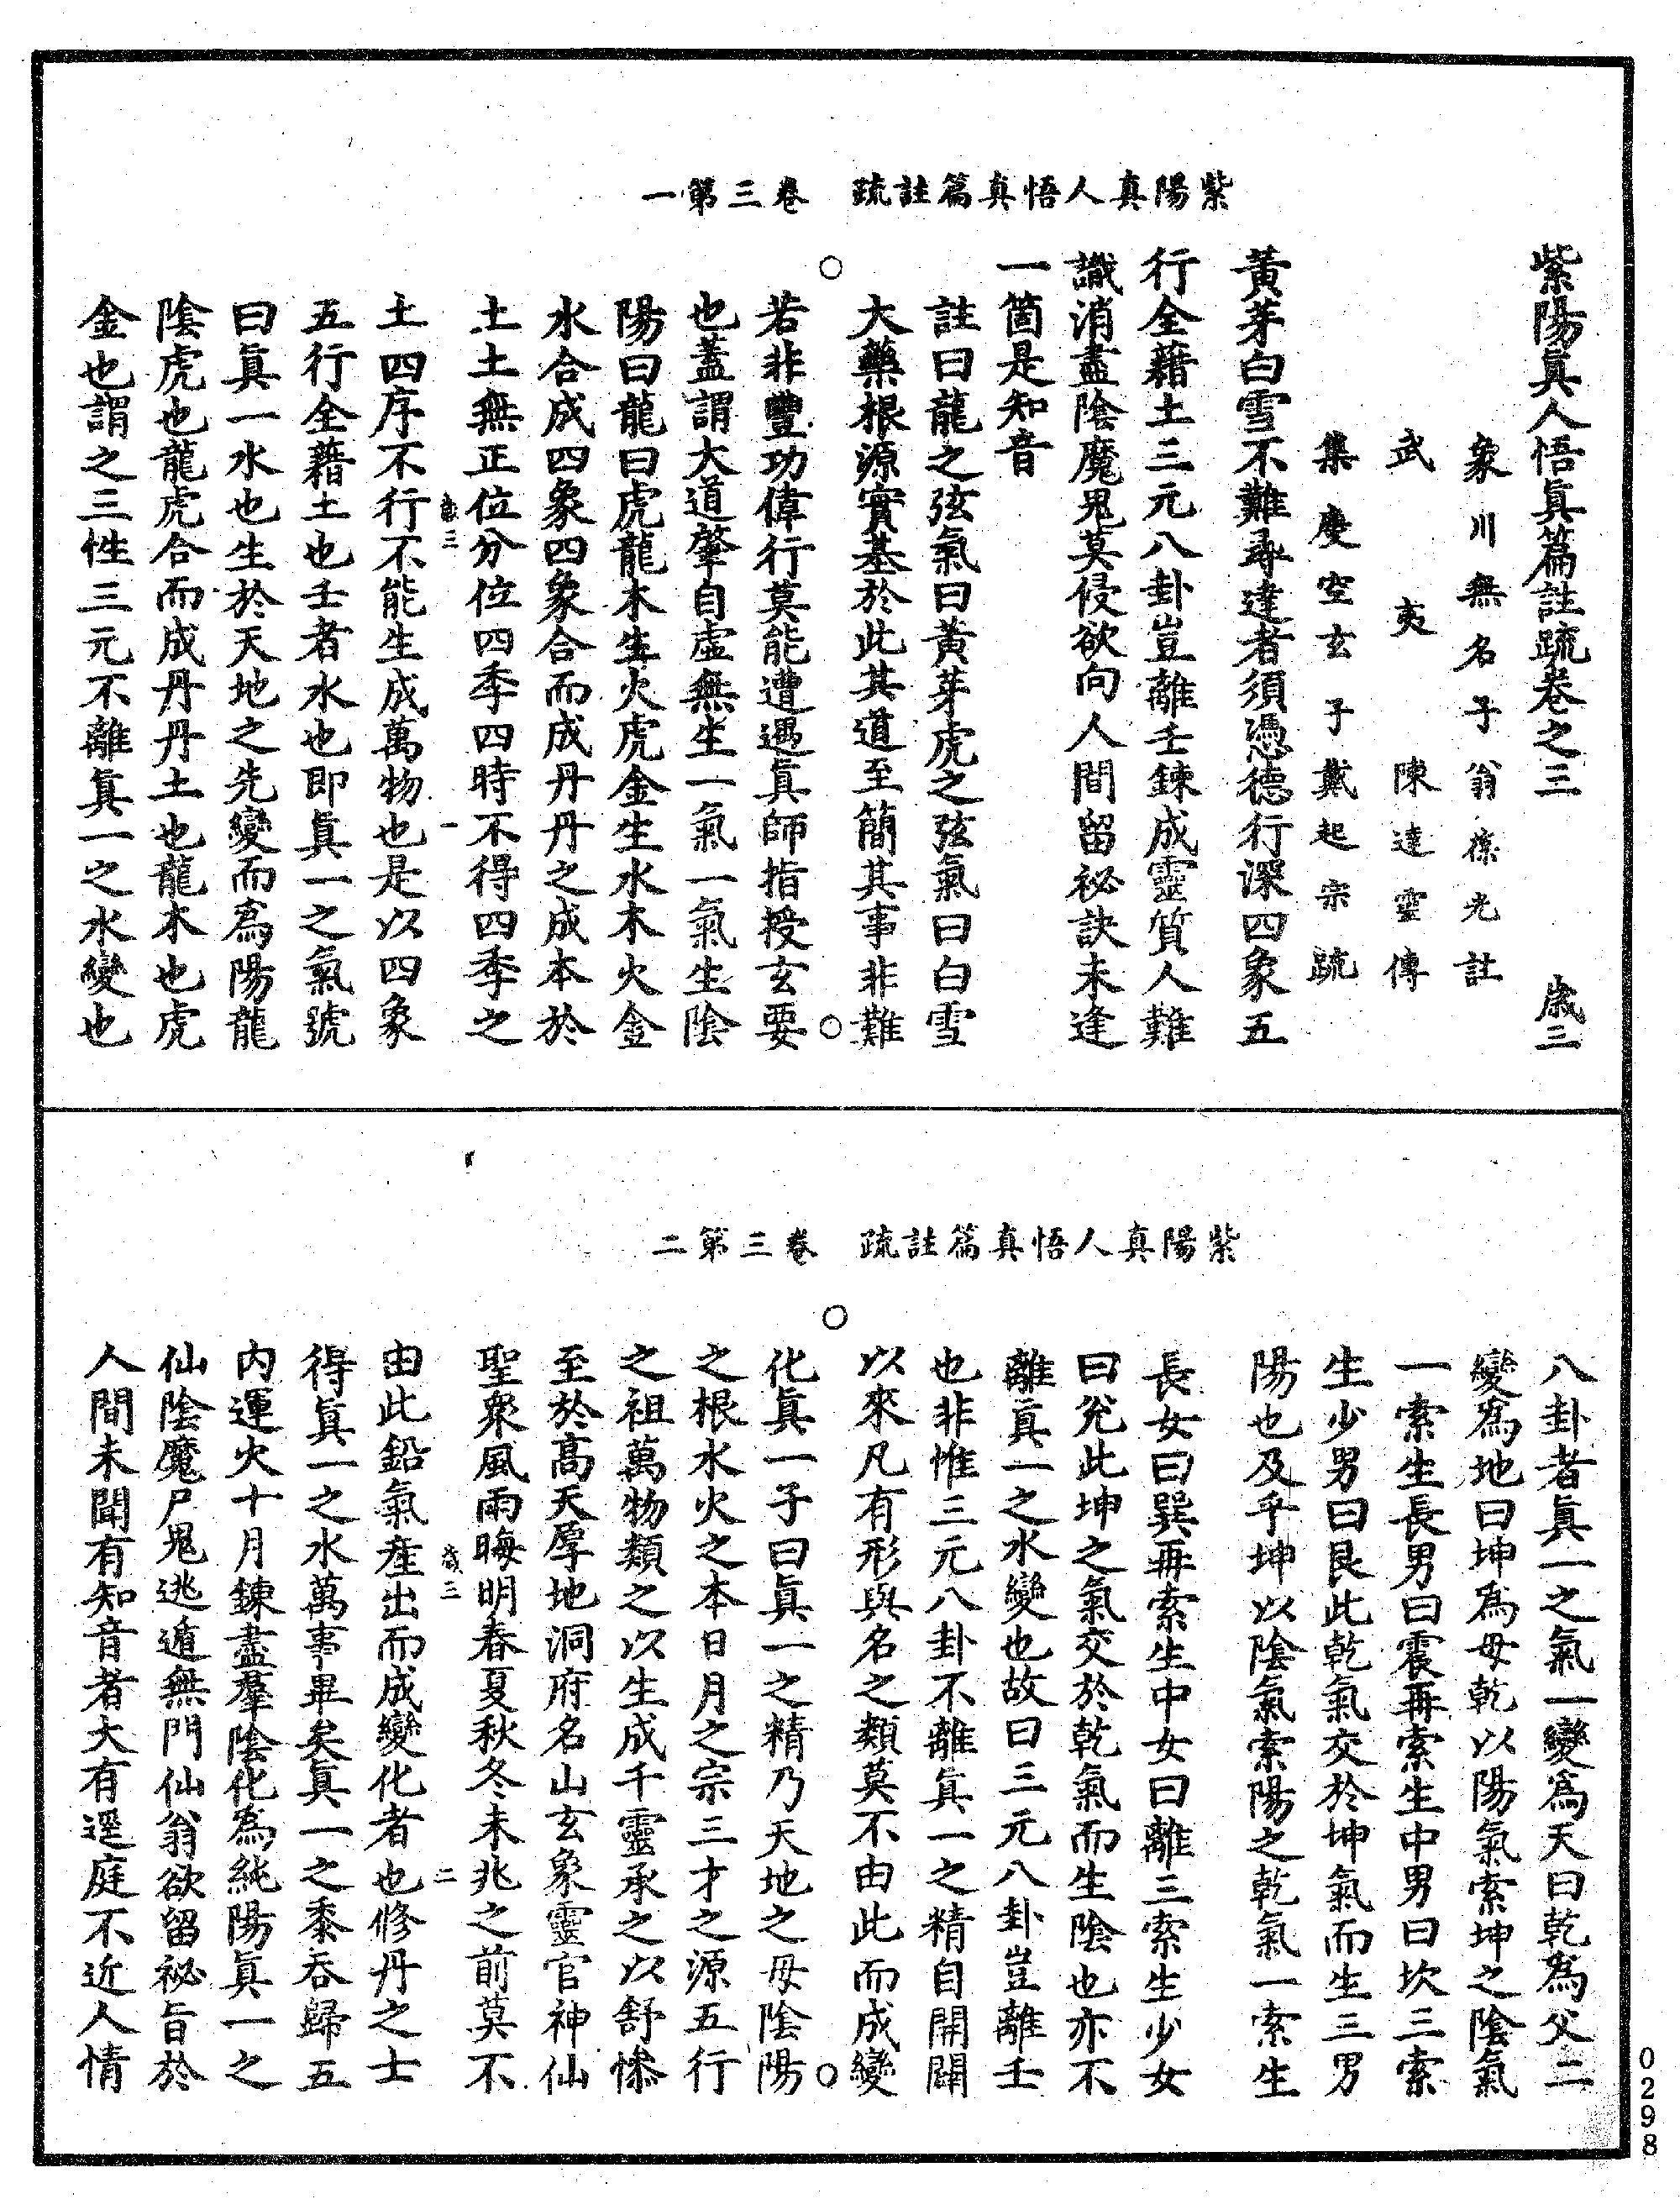 紫陽真人悟真篇註疏　卷三第一
紫陽眞人悟眞篇註疏卷之三　歲三
象川無名子翁葆光註
武夷陳達靈傳
集慶空玄子戴起宗疏
黃芽白雪不難尋達者須憑德行深四象五
行全藉土三元八卦豈離壬鍊成靈質人難
識消盡陰魔鬼莫侵欲向人間留祕訣未逢
一箇是知音
註曰龍之弦氣曰黃芽虎之弦氣曰白雪
大藥根源實基於此其道至簡其事非難
若非豐功偉行莫能遭遇眞師指授玄要
也蓋謂大道肇自虛無生一氣一氣生陰
陽曰龍曰虎龍木生火虎金生水木火金
水合成四象四象合而成丹丹之成本於
土土無正位分位四季四時不得四季之
歲三　一
土四序不行不能生成萬物也是以四象
五行全藉土也壬者水也即眞一之氣號
曰眞一水也生於天地之先變而爲陽龍
陰虎也龍虎合而成丹丹土也龍木也虎
金也謂之三性三元不離眞一之水變也
紫陽真人悟真篇註疏　卷三第二
八卦者眞一之氣一變爲天曰乾爲父二
變爲地曰坤爲母乾以陽氣索坤之陰氣
一索生長男曰震再索生中男曰坎三索
生少男曰艮此乾氣交於坤氣而生三男
陽也及乎坤以陰氣索陽之乾氣一索生
長女曰巽再索生中女曰離三索生少女
曰兌此坤之氣交於乾氣而生陰也亦不
離眞一之水變也故曰三元八卦豈離壬
也非惟三元八卦不離眞一之精自開闢
以來凡有形與名之類莫不由此而成變
化眞一子曰眞一之精乃天地之母陰陽
之根水火之本日月之宗三才之源五行
之祖萬物類之以生成千靈承之以舒慘
至於高天厚地洞府名山玄象靈官神仙
聖衆風雨晦明春夏秋冬未兆之前莫不
歲三　二
由此鉛氣產出而成變化者也修丹之士
得眞一之水萬事畢矣眞一之黍吞歸五
內運火十月鍊盡羣陰化爲純陽眞一之
仙陰魔尸鬼逃遁無門仙翁欲留祕旨於
人間未聞有知音者大有逕庭不近人情
0298